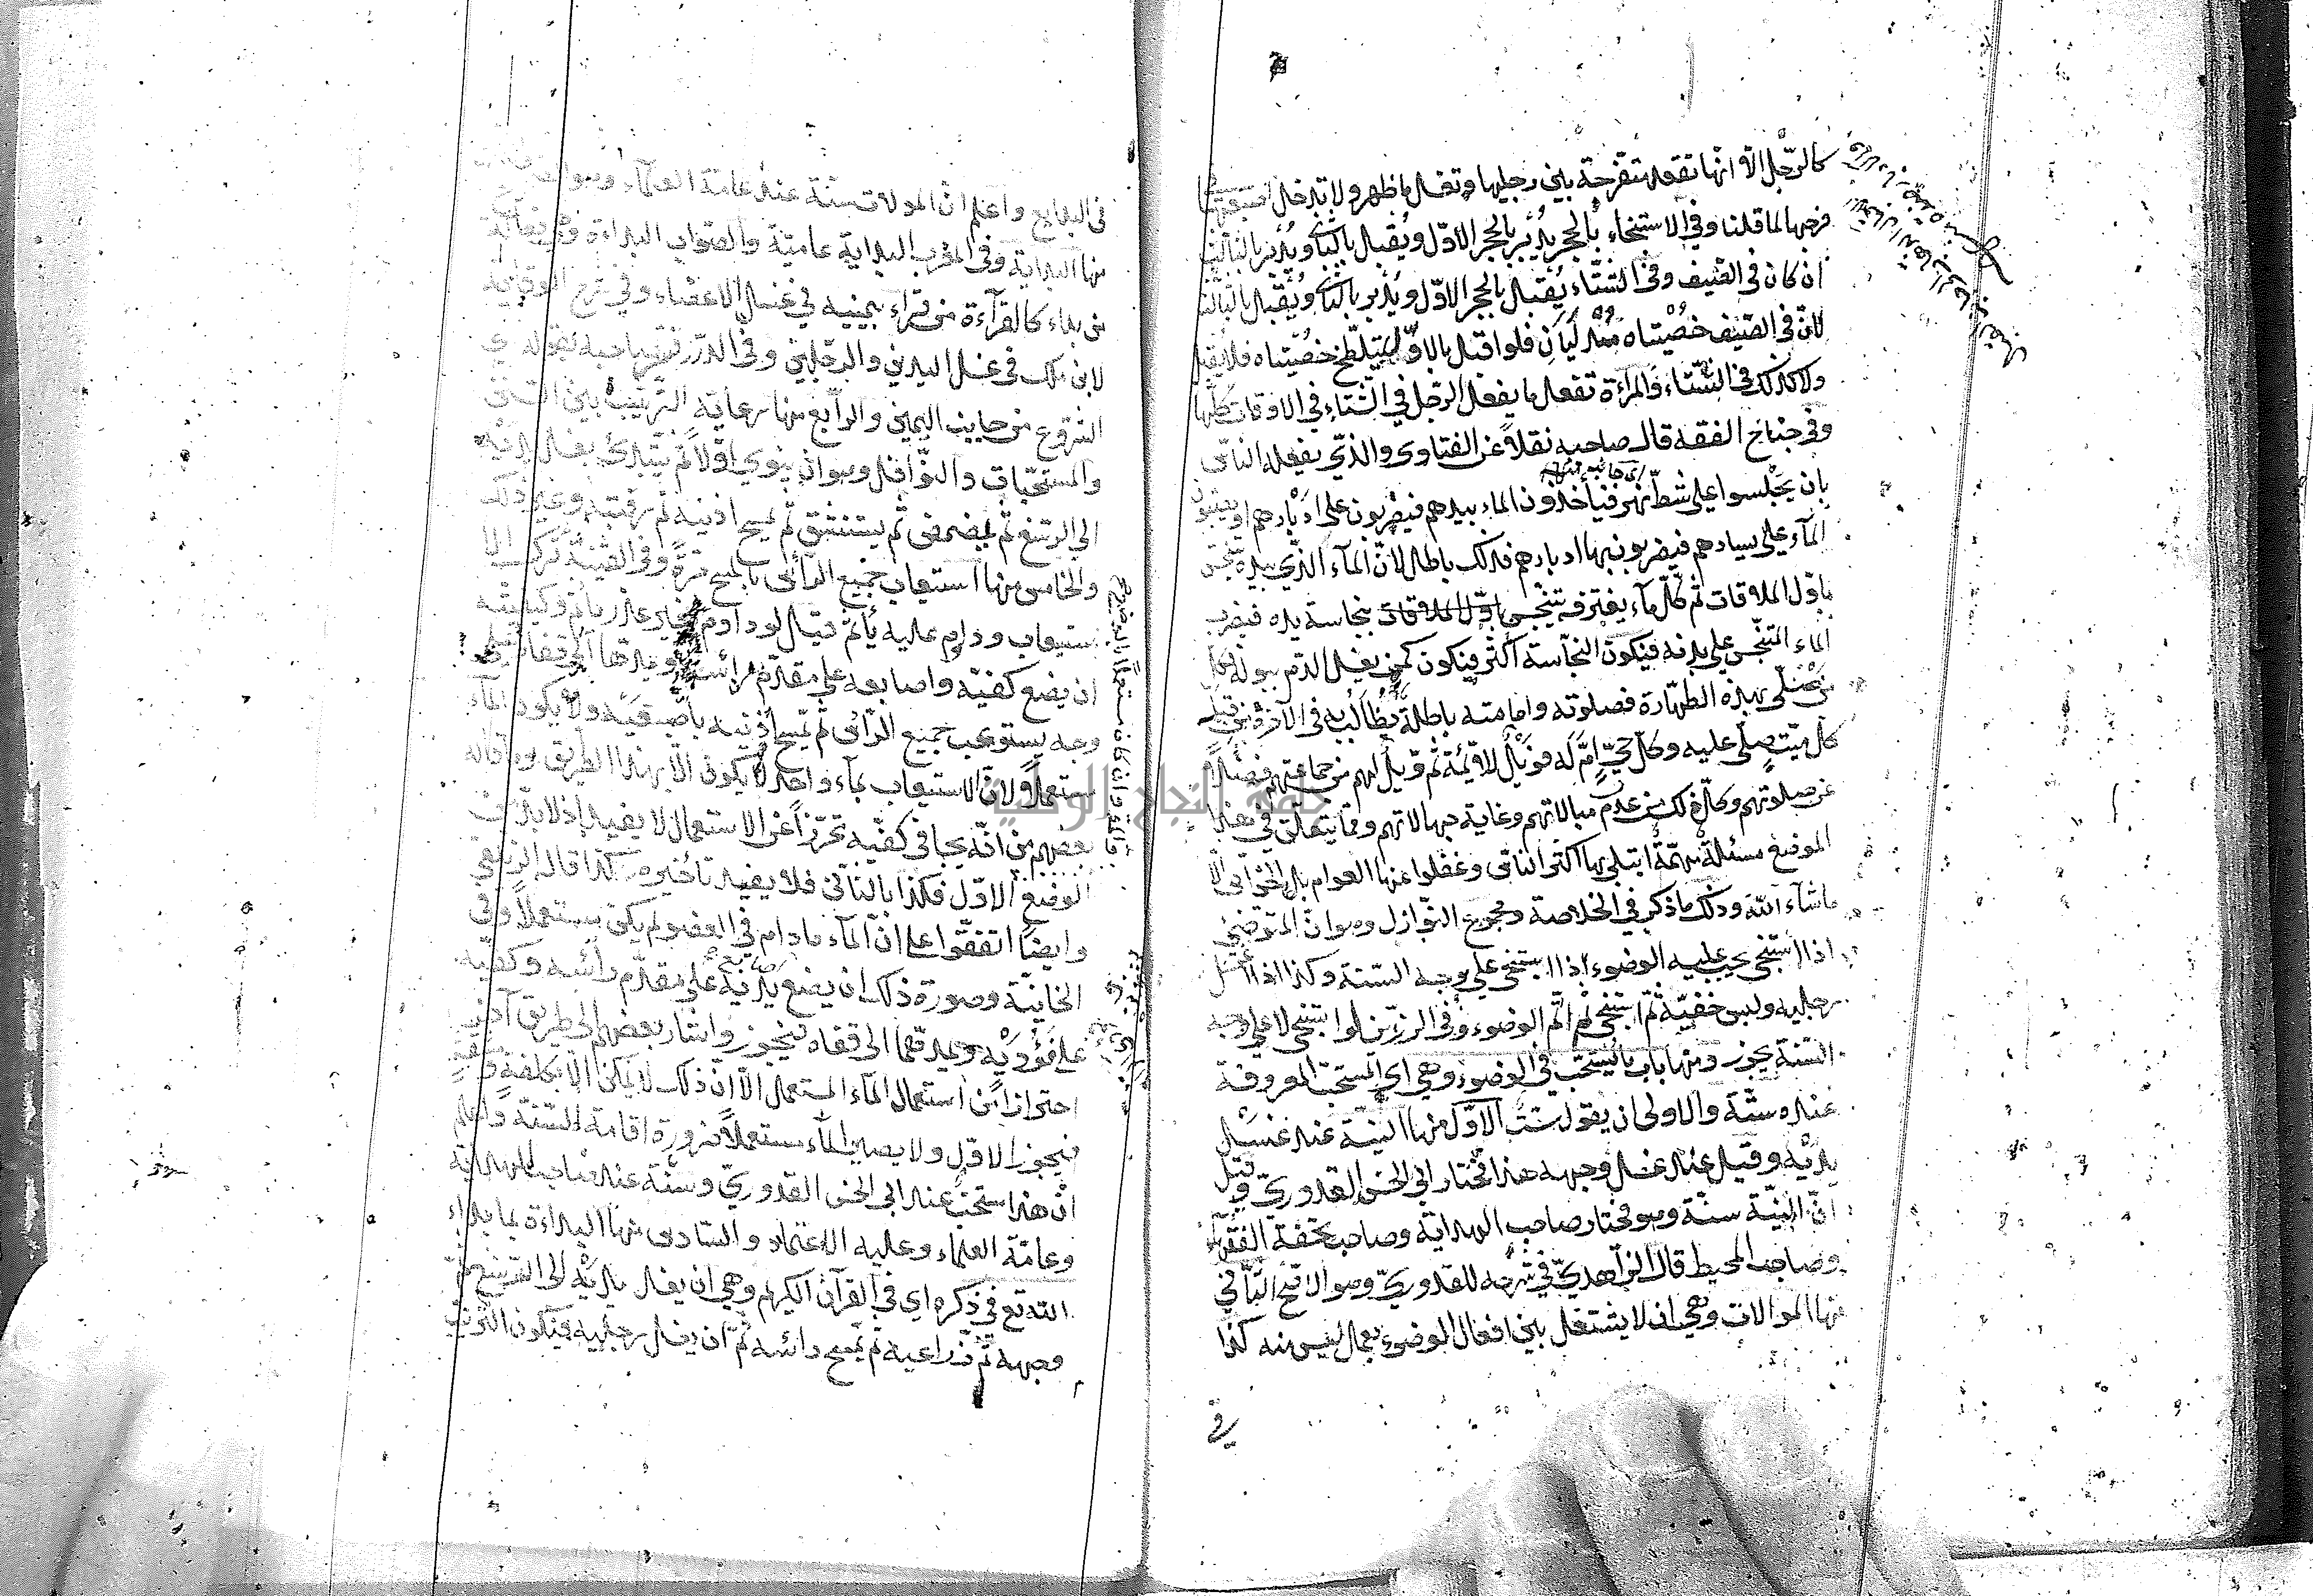 كالرّجل الّا انّها تقعد متفرجة بين رجليها وتغسل ما ظهر ولا تدخل اصبعها
فرجها لما قلنا وفي الاستنجاء بالحجر يُدْبر بالحجر الاوّل ويُقبل بالثّاني ويُدْبر بالثالث
ان كان في الصّيف وفي الشّتاء يُقبل بالحجر الاوّل ويُدْبر بالثّاني ويُقبل بالثالث
لانّ في الصّيف خُصْيتاه مُتدلّيان فلو اقبل بالاوّل يتلطّخ خصيتاه فلا يقبل
ولا كذلك في الشّتاء والمراءة تفعل ما يفعل الرّجل في الشّتاء في الاوقات كلّها
وفي جناح الفقه قال صاحبه نقلاً عن الفتاوى والذّي يفعله النّاس
بان يَجْلسوا على شطّ نهر فيأخذون الماء بيدهم فيضربون على ادْبارهم او يصبّون
المآء على يسارهم فيضربون بها ادبارهم فذلك باطل لانّ المآء الذّي بيده تنجّس
باوّل الملاقات ثم كلّ مآء يغترفه تنجّس بنجاسة يده فيضرب
الماء المتنجّس على بدنه فيكون النّجاسة اكثر فيكون كمن يغسل الدّم ببوله فكلّ
من صلّى بهذه الطهارة فصلوته وامامته باطلة يُطالب به في الآخرة من قبل
كلّ ميّت صلّى عليه وكلّ حيّ امّ له فويل للائمة ثم ويل لهم من جماعتهم فضلاً
عن صلاتهم وكلّ ذلك من عدم مبالاتهم وغاية جهالاتهم وممّا يتعلّق في هذا
الموضع مسئلة مهمّة ابتلي بها اكثر النّاس وغفلوا عنها العوام بل الخواص الّا
ماشآء الله وذلك ما ذكر في الخلاصة ومجموع النّوازل وهو انّ المتوضّئ
اذا استنجى يجب عليه الوضوء اذا استنجى على وجه السّنة وكذا اذا غسل
رجليه ولبس خفيّه ثمّ استنجى ثمّ اتمّ الوضوء وفي الرزين لو استنجى لا على وجه
السّنة يجوز ومنها باب ما يُستحبّ في الوضوء وهي اي المستحبّ المعروفة
عنده ستّة والاولى ان يقول ستّ الاوّل منها النيّة عند غسل
يديْه وقيل عند غسل وجهه هذا مختار ابي الحسن القدوريّ وقيل
انّ النّيّة سنّة وهو مختار صاحب الهداية وصاحب تحفة الفقهآء
وصاحب المحيط قال الزّاهديّ في شرحه للقدوريّ وهو الاصح الثّاني
منها الموالات وهي ان لا يشتغل بين افعال الوضوء بعمل ليس منه كذا
في
في البدايع واعلم انّ الموالات سنّة عند عامّة العلمآء
منها البداية وفي المغرب البداية عاميّة والصّواب البداءة
من بداء كالقرآءة من قراء بيمينه في غسل الاعضاء وفي شرح الوقاية
لابن ملك في غسل اليدين والرّجلين وفي الدّرر فسّر صاحبه بقوله اي
الشّروع من جانب اليمين والرّابع منها رعاية التّرتيب بين السّنن
والمستحبّات والنّوافل وهو ان ينوي اوّلاً ثمّ يبتدئ بغسل يديه
الى الرّسغ ثمّ يمضمض ثمّ يستنشق ثمّ يمسح اذنيه ثمّ رقبته وغير ذلك
والخامس منها استيعاب جميع الرّأس بالمسح مرّةً وفي القنية ترك الا
ستيعاب ودام عليه يأثم قيل لو داوم بغير عذر يأثم وكيفيّته
ان يضع كفيّه واصابعه على مقدّم رأسه ويمدّها الى قفاه على
وجه يستوعب جميع الرّأس ثم يمسح اذنيه باصبعيه ولا يكون المآء
مستعملاً لانّ الاستيعاب بمآء واحد لا يكون الّا بهذا الطريق وما قاله
بعضهم من انّه يجافي كفيّه تحرّزاً عن الاستعمال لا يفيد اذ لا بدّ من
الوضع الاوّل فكذا بالثّاني فلا يفيد تأخيره كذا قاله الزيلعي
وايضاً اتفقّوا على انّ المآء مادام في العضو لم يكن مستعملاً وفي
الخانيّة وصورة ذلك ان يضع يديْه على مقدّم رأسه وكفيّه
على فَوْدَيْه ويمدّهما الى قفاه فيجوز واشار بعضهم الى طريق آخر
احترازاً من استعمال المآء المستعمل الّا انّ ذلك لا يمكن الّا بكلفة ومشقّة
فيجوز الاوّل ولا يصير المآء مستعملاً ضرورة اقامة السّنّة واعلم
انّ هذا مستحبّ عند ابي الحسن القدوريّ وسنّة عند صاحب الهداية
وعامّة العلماء وعليه الاعتماد والسّادس منها البداءة بما بداء
الله تع في ذكره اي في القرآن الكريم وهي ان يغسل يديْه الى الرّسغ ثمّ
وجهه ثمّ ذراعيه ثمّ يمسح رأسه ثمّ ان يغسل رجليه فيكون التّرتيب